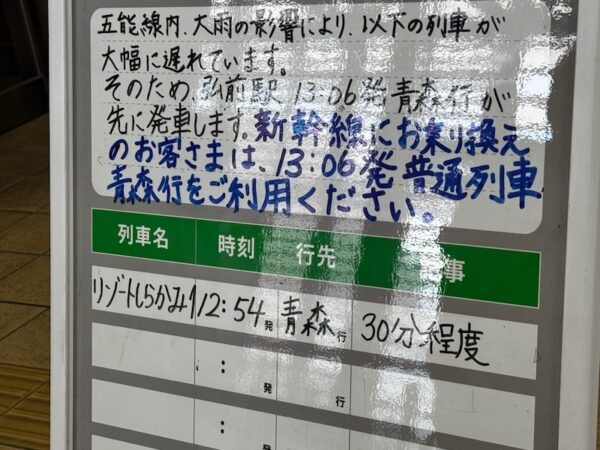 五能線内、大雨の影響により、以下の列車が
大幅に遅れています。
そのため、弘前駅 13:06発青森行が
先に発車します。新幹線にお乗り換え
のお客さまは、13:06発普通列車
青森行をご利用ください。
列車名 時刻 行先 事
リゾートしらかみ1 12:54発 青森行 30分程度
: 発 行
: 発 行